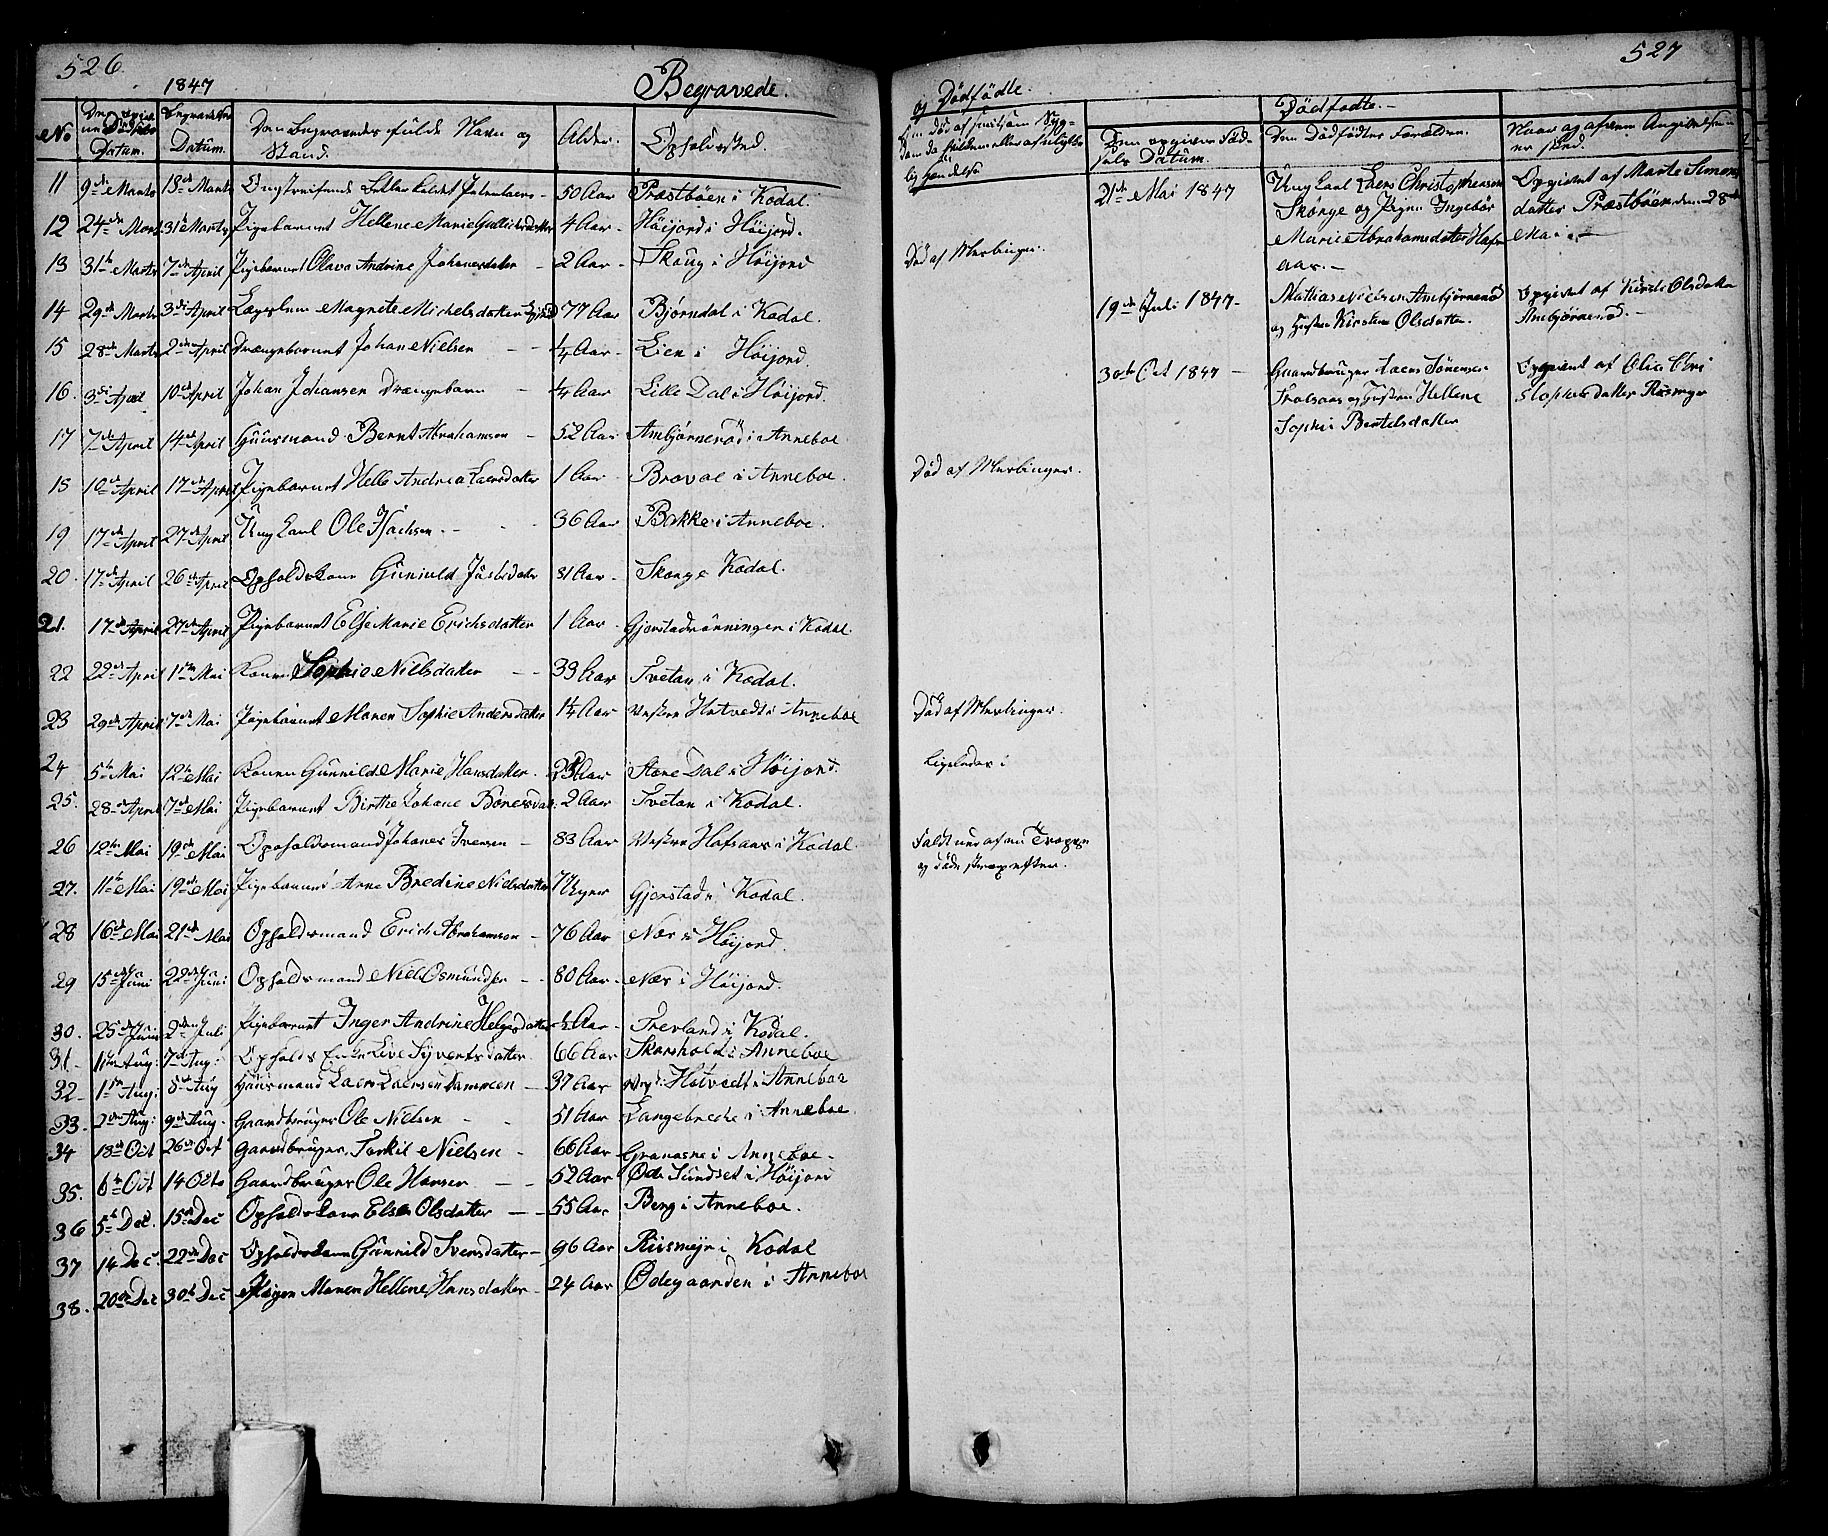 526.
1847
Begravede.
No
Datum.
Begravelses Datum.
Den Begravedes fulde Navn og Stand.
Alder.
Opholdssted.
11 9de Marts 18de Marts 50 Aar Præstbøen i Kodal.
12 24de Marts 31te Marts Pigebarnet Hellene Marie Gulliksdatter 4 Aar - Höijord i Höijord.
13 31te Marts 7de April Pigebarnet Olava Andrine Johanesdatter - 2 Aar - Skoug i Höijord
14 29de Marts 3die April Lægslem Magnete Mickelsdatter 77 Aar Bjørndal i Kodal.
15 28de Marts 2den April Drængebarnet Johan Nielsen - - 1/4 Aar - Lien i Höijord.
16. 3die April 10de April Johan Johansen Drængebarn - 1/4 Aar - Lille Dal i Höijord.
17 7de April 14de April Huusmand Bernt Abrahamsen - 52 Aar Ambjørnerød i Anneboe.
18 10de April 17de April Pigebarnet Helle Andrea Laersdatter 1 Aar - Bravoe i Anneboe.
19 17de April 27de April Ungkarl Ole Isachsen - - 36 Aar Bakke i Anneboe.
20. 17de April 26de April Opholdskone Guniuld Justsdatter 81 Aar - Skorge Kodal.
21. 17de April 27de April Pigebarnet Else Marie Erichsdatter 1 Aar - Gjerstadrönningen i Kodal.
22 22de April 1ste Mai Konen Sophie Nielsdatter - - 33 Aar Tvetan i Kodal.
23 29de April 7de Mai Pigebarnet Maren Sophie Andersdatter 1 1/4 Aar - Vestre Hotvedt i Anneboe
24 5te Mai 12te Mai Konen Gunnild Marie Hansdatter - Aar - Store Dal i Höijord.
25. 28de April 7de Mai Pigebarnet Birthe Johane 2 Aar - Tvetan i Kodal.
26 12te Mai 19de Mai Opholdsmand Johanes Iversen - 83 Aar Vestre Hafsaas i Kodal.
27. 11te Mai 19de Mai Pigebarnet Anne Bredine Nielsdatter 7 Uger Gjerstad i Kodal.
28 16de Mai 21de Mai Opholdsmand Erich Abrahamsen - 76 Aar Nær i Höijord.
29 15de Juni 22de Juni Opholdsmand Niels Osmundsen - - 80 Aar - Nær i Höijord.
30. 25de Juni 2den Juli Pigebarnet Inger Andrine Helgesdatter 1/2 Aar - Trevland i Kodal.
31. Aug: 7de Aug: Opholds Enke Live Syvertsdatter. 66 Aar Skarsholt i Anneboe
32 1ste Aug: 8de Aug Huusmand Laers Laersen - 37 Aar Hotvedt i Anneboe
33. 2den Aug: 9de Aug. Gaardbruger Ole Nielsen - - 51 Aar Langebrekke i Anneboe.
34 18de Oct 26de Oct Gaardbruger Torkil Nielsen - 66 Aar Granasne i Anneboe -
35. 6te Oct 14 Octo Gaardbruger Ole Hansen - - 52 Aar Øde Sundset i Höijord
36 5te Dec. 15de Dec Opholdskone Else Olsdatter - - 55 Aar Berg i Anneboe.
37 14 Dec. 22de Dec Opholdskone Gunnild Ivensdatter - 96 Aar Riismyr i Kodal
38. 20de Dec 30te Dec Pigen Maren Hellene Hansdatter - 24 Aar Ødegaarden i Anneboe
527
og Dödfödte.
Död af Meslinger.
Död af Meslinger.
Död af Meslinger.
Ligeledes i
Faldt ned af en Trappe
og döde strax efter.
Dødfødte -
Den opgivne Födsels Datum.
Den Dödfödtes Forældre.
Naar og af hvem Angivelsen er skeed.
21de Mai 1847
Ungkarl Laers Christophersen
Skorge og Pigen Ingebör
Marie Abrahamsdatter Hafsaas. -
Opgivet af Marte Simonsdatter Præstbøen den 28de
Mai. -
19de Juli 1847 -
Mathias Nielsen Ambjørnerød
og Hustru Kirsten Olsdatter.
Opgivet af Kirsti Olsdatter
Ambjørnerød. -
30te Oct 1847 -
Gaardbruger Laers Sørensen
Trolsaas og Hustru Hellene
Sophie Bertelsdatter
Opgivet af Olia Christophersdatter Riismyr